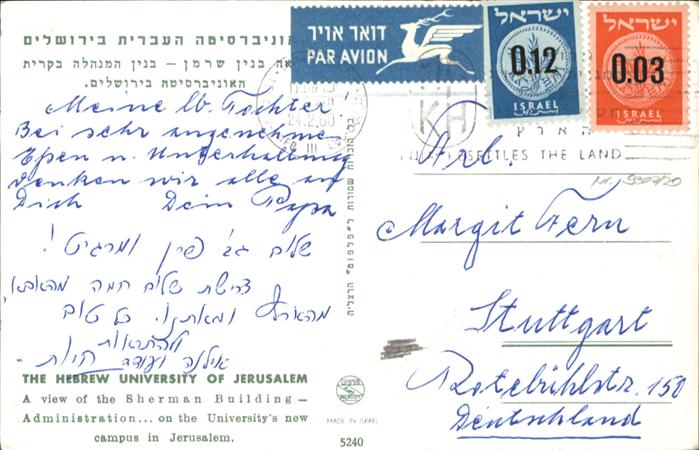 אוניברסיטה העברית בירושלים
בנין שרמן – בנין המנהלה בקרית
האוניברסיטה בירושלים.
דואר אויר
PAR AVION
ישראל
0.12
ISRAEL
ישראל
0.03
ISRAEL
24.2.60
KKH
הארץ
SETTLES THE LAND
Meine lb. Tochter!
Bei sehr angenehme
Essen u. Unterhaltung
denken wir alle an
Dich Dein Papa
שלום גב' פרן ומרגיט!
דרישת שלום חמה מהאבא,
מהארץ ומאתנו. כל טוב
ולהתראות
אילנה ועודד
THE HEBREW UNIVERSITY OF JERUSALEM
A view of the Sherman Building –
Administration... on the University's new
campus in Jerusalem.
כל הזכויות שמורות ל"פלפוט" הרצליה
PALPHOT
MADE IN ISRAEL
5240
Frl.
Margit Fern
Stuttgart
Rotebühlstr. 150
Deutschland